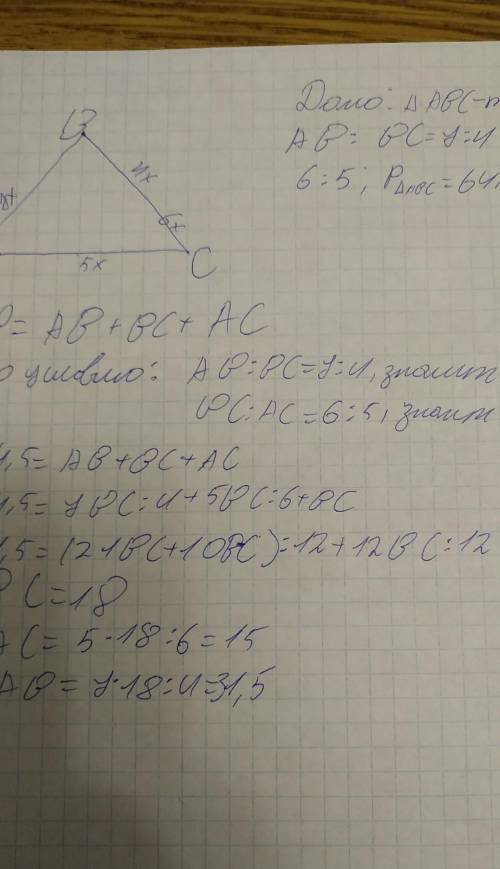 Дано: △ABC-
B
AB : BC = 7:4
4x
6:5; P△ABC = 64,
7x
6x
5x
C
P = AB + BC + AC
условию: AB:BC=7:4, значит
BC:AC=6:5, значит
4,5 = AB+BC+AC
4,5 = 7BC:4+5BC:6+BC
4,5 = (21BC+10BC):12+12BC:12
BC=18
AC = 5·18:6=15
AB = 7·18:4=31,5